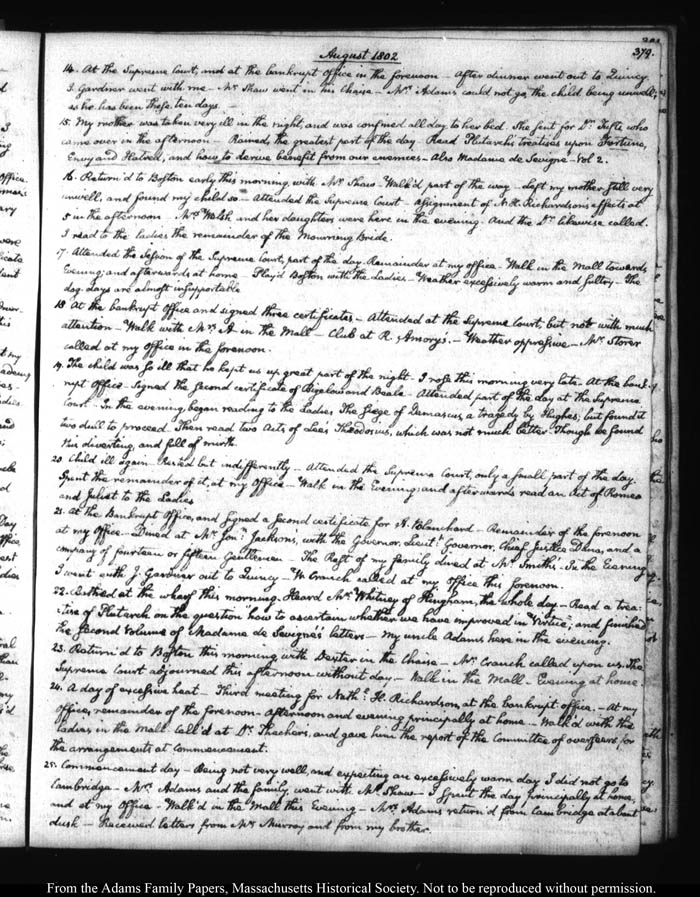 August 1802
379.
14. At the Supreme Court, and at the bankrupt office in the forenoon — After dinner went out to Quincy.
J. Gardner went with me — Mr Shaw went in his Chaise — Mrs Adams could not go, the child being unwell;
as he has been these ten days. —
15. My mother was taken very ill in the night, and was confined all day to her bed. She sent for Dr. Tufts, who
came over in the afternoon — Rained, the greatest part of the day. Read Plutarch's treatises upon Fortune,
Envy and Hatred, and how to derive benefit from our enemies — Also Madame de Sevigne — Vol 2.
16. Return'd to Boston early this morning, with Mr Shaw — Walk'd part of the way — Left my mother still very
unwell, and found my child so — Attended the Supreme Court — Assignment of N. H. Richardson's effects at
5 in the afternoon — Mrs Welsh and her daughters were here in the evening — And the Dr likewise called.
I read to the Ladies the remainder of the Mourning Bride.
17. Attended the Session of the Supreme Court, part of the day. Remainder at my office — Walk in the Mall towards
Evening; and afterwards at home — Play'd Boston with the Ladies — Weather excessively warm and sultry — The
dog-days are almost insupportable
18. At the bankrupt office and signed three certificates — Attended at the Supreme Court, but not with much
attention — Walk with Mrs A in the Mall — Club at R. Amory's. — Weather oppressive — Mr Storer
called at my Office in the forenoon.
19. The child was so ill that he kept us up great part of the night — I rose this morning very late — At the bank-
rupt Office — Signed the second certificate of Bigelow and Beale — Attended part of the day at the Supreme
Court — In the evening began reading to the Ladies The Siege of Damascus, a tragedy by Hughes; but found it
too dull to proceed. Then read two Acts of Lee's Theodosius, which was not much better. Though we found
this diverting, and full of mirth.
20. Child ill again — Rested but indifferently — Attended the Supreme Court, only a small part of the day.
Spent the remainder of it, at my Office — Walk in the Evening; and afterwards read an Act of Romeo
and Juliet to the Ladies
21. At the Bankrupt Office, and signed a second certificate for H. Blanchard — Remainder of the forenoon
at my Office — Dined at Mr Jonn Jackson's, with the Governor, Lieutt Governor, Chief Justice Dana, and a
company of fourteen or fifteen Gentlemen — The Rest of my family dined at Mr Smith's — In the Evening
I went with J. Gardner out to Quincy — W. Cranch called at my Office this forenoon.
22. Bathed at the wharf this morning. Heard Mr Whitney of Hingham, the whole day — Read a trea-
tise of Plutarch on the question "how to ascertain whether we have improved in Virtue", and finished
the second volume of Madame de Sevigne's letters — My uncle Adams here in the evening.
23. Return'd to Boston this morning with Dexter in the Chaise — Mr Cranch called upon us. The
Supreme Court adjourned this afternoon without day — Walk in the Mall — Evening at home.
24. A day of excessive heat — Third meeting for Nathl H. Richardson, at the bankrupt office. — At my
Office, remainder of the forenoon — Afternoon and evening principally at home — Walk'd with the
Ladies, in the Mall. Call'd at Dr Thacher's, and gave him the report of the Committee of overseers for
the arrangements at Commencement.
25. Commencement day — Being not very well, and expecting an excessively warm day I did not go to
Cambridge — Mrs Adams and the family, went with Mr Shaw — I spent the day principally at home,
and at my Office — Walk'd in the Mall this Evening — Mrs Adams return'd from Cambridge at about
dusk — Received letters from Mr Murray and from my brother.
From the Adams Family Papers, Massachusetts Historical Society. Not to be reproduced without permission.